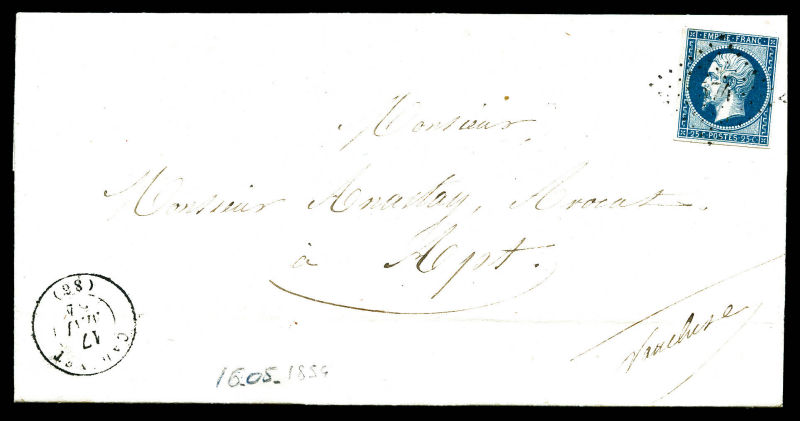 EMPIRE FRANC
25 c POSTES 25 c
Monsieur
Monsieur Anastay, Avocat.
à Apt.
Vaucluse
(28)
17
MAI
16-05-1854